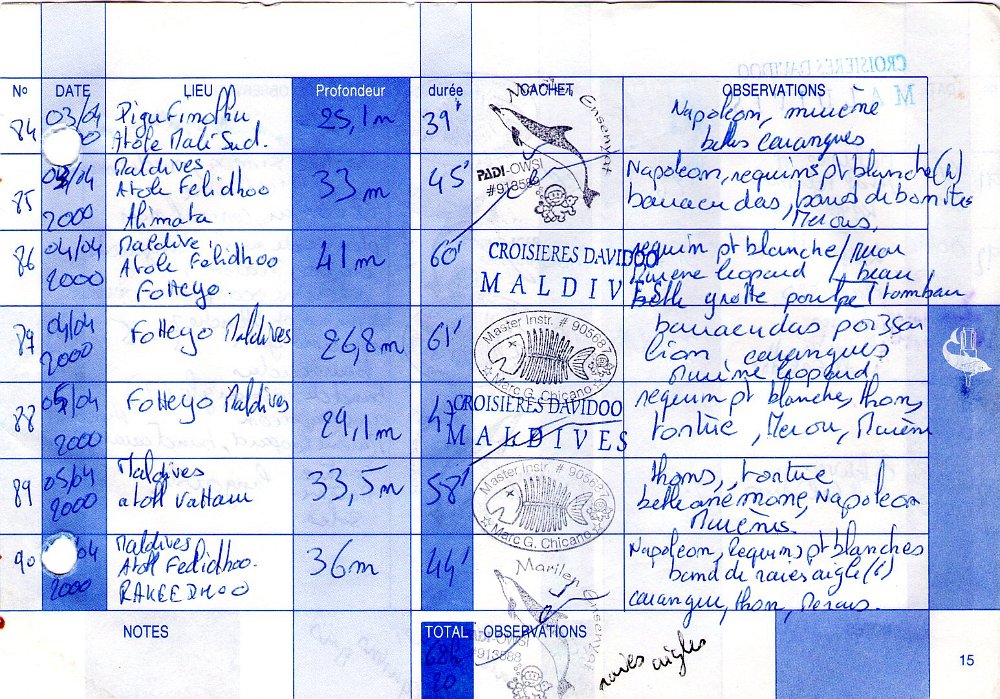 CROISIERES DAVIDOO
M A L D I V E S
N° DATE LIEU Profondeur durée CACHET OBSERVATIONS
84 03/04 25,1m 39' Napoleon, murène
Atole Mali Sud. belles carangues
PADI-OWSI
Ensenyat
85 04 Maldives 33m 45' Napoleon, requins pt blanche
2000 Atole Felidhoo barracudas, bancs de bonites
Alimata Merous,
86 04/04 Maldive, 41m 60' requin pt blanche
2000 Atole Felidhoo murène leopard beau
Fotteyo. belle grotte poulpe
CROISIERES DAVIDOO
M A L D I V E S
87 04/04 Fotteyo Maldives 26,8m 61' barracudas poisson
2000 lion, carangues
Murène leopard
Master Instr. # 90563
Marc G. Chicano
88 05/04 Fotteyo Maldives 29,1m requin pt blanche, thons,
2000 tortue, Merou, Murène
CROISIERES DAVIDOO
M A L D I V E S
89 05/04 Maldives 33,5m 58' thons, tortue
2000 atoll Vattaru belle anémone, Napoleon
Murènes.
Master Instr. # 90563
Marc G. Chicano
90 04 Maldives 36m 44' Napoleon, Requins pt blanches
2000 Atoll Felidhoo. banc de raies aigle
RAKEEDHOO carangue, thon, Merous.
Marilen Ensenyat
PADI-OWSI
#913588
NOTES TOTAL OBSERVATIONS
raies aigles
15